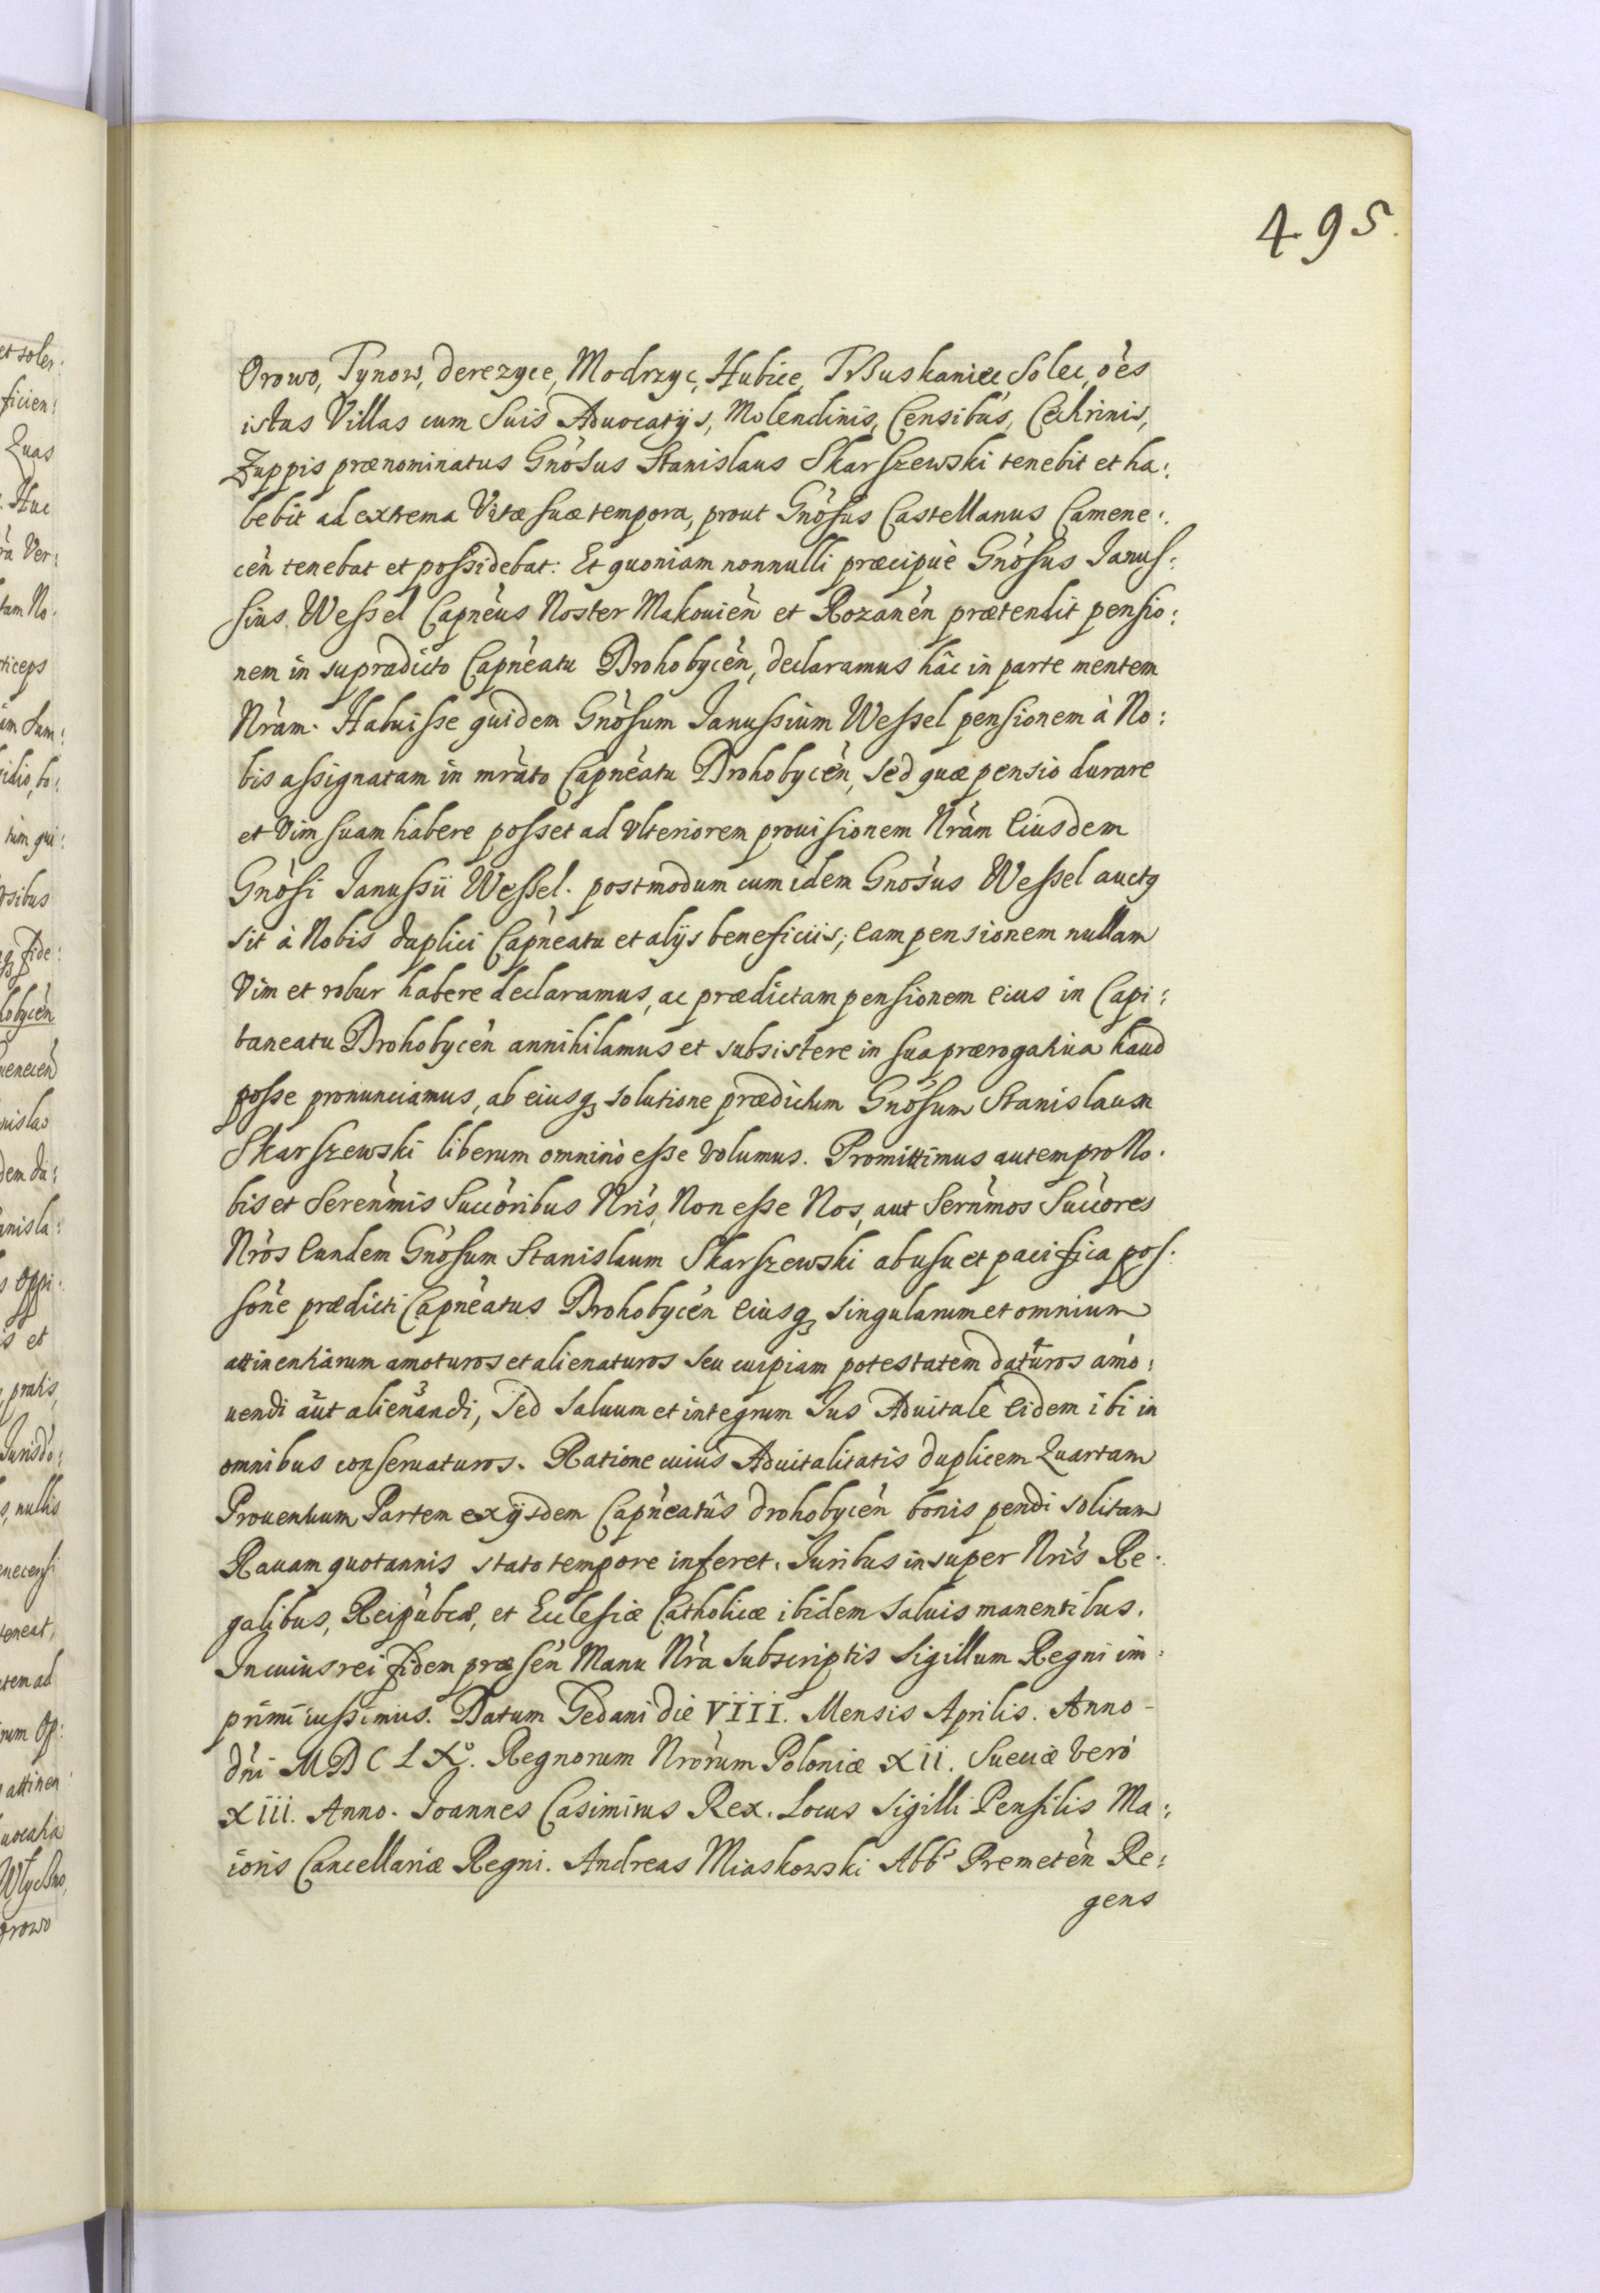 495.
Orowo, Tynow, derezyce, Modrzyc, Hubice, Truskaniec Solec, oés
istas Villas cum Suis Aduocatijs, Molendinis, Censibus, Cechrinis,
Zuppis prænominatus Gnósus Stanislaus Skarszewski tenebit et ha:
bebit ad extrema Vitæ suæ tempora, prout Gnósus Castellanus Camene:
cén tenebat et possidebat: Et quoniam nonnulli præcipuè Gnósus Janus:
sius Wessel Capnéus Noster Makouién et Rozanén prætendit pensio:
nem in supradicto Capnéatu Drohobycén, declaramus hâc in parte mentem
Nrám. Habuisse quidem Gnósum Janussium Wessel pensionem à No:
bis assignatam in mráto Capnéatu Drohobycén, sed quæ pensio durare
et Vim suam habere posset ad Vlteriorem prouisionem Nrám Eiusdem
Gnósi Janussii Wessel. postmodum cum idem Gnósus Wessel auctꝯ
sit à Nobis duplici Capnéatu et alijs beneficiis, Eam pensionem nullam
Vim et robur habere declaramus, ac prædictam pensionem Eius in Capi:
taneatu Drohobycén annihilamus et subsistere in sua prærogatiua haud
posse pronunciamus, ab eiusqꝫ solutione prædictum Gnósum Stanislaum
Skarszewski liberum omninò esse volumus. Promittimus autem pro No.
bis et Serenmis Succóribus Nrís, Non esse Nos, aut Sernmos Succóres
Nrós Eundem Gnósum Stanislaum Skarszewski ab usu et pacifica pos.
sóne prædicti Capnéatus Drohobycén Eiusqꝫ singularum et omnium
attinentiarum amoturos et alienaturos seu cuipiam potestatem daturos amo:
uendi aut alienandi, Sed saluum et integrum Jus Aduitale Eidem ibi in
omnibus conseruaturos. Ratione cuius Aduitalitatis duplicem Quartam
Prouentuum Partem ex ijsdem Capnéatus drohobycén bonis pendi solitam
Rauam quotannis stato tempore inferet. Juribus insuper Nrís Re.
galibus, Reipúbcæ, et Ecclesiæ Catholicæ ibidem saluis manentibus.
In cuius rei fidem præsén Manu Nrá subscriptis sigillum Regni im:
primi iussimus. Datum Gedani die VIII. Mensis Aprilis. Anno-
dni MDCLXº. Regnorum Nrórum Poloniæ XII. Sueciæ verò
XIII. Anno. Joannes Casimirus Rex. Locus Sigilli Pensilis Ma:
ioris Cancellariæ Regni. Andreas Miaskowski Abbs Premetén Re:
gens